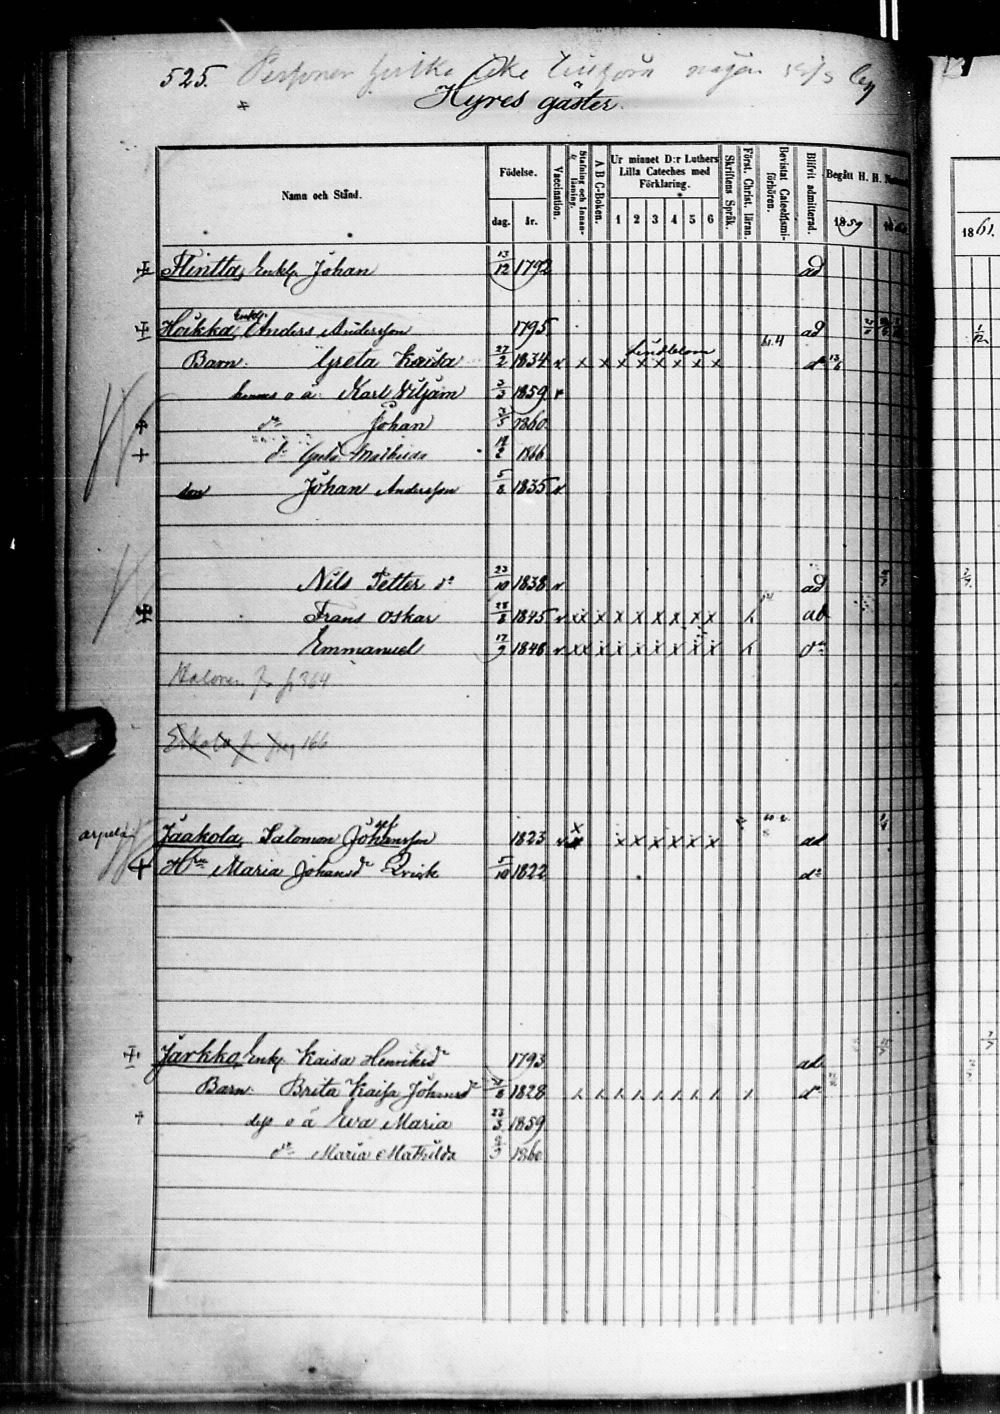 525. Personer hvilka icke tillhöra någon
Hyres gäster.
Namn och Stånd.
Födelse.
dag. år.
Vaccination.
Stafning och Innanläsning.
A B C-Boken.
Ur minnet D:r Luthers Lilla Cateches med Förklaring.
1 2 3 4 5 6
Skriftens Språk.
Först. Christ. läran.
Bevistat Catechismiförhören.
Blifvit admitterad.
Begått H. H. Nattvard
1859
1861.
Flintta, Enkl. Johan 13/12 1792 ad
Hoikka, Enkl. Anders Andersson 1795 ad
Lindblom
Barn. Greta Kaisa 27/2 1834 v x x x x x x x x x d:o
hennes o ä. Karl Viljam 3/3 1859 v
d:o Johan 1860
d:o Greta Mathilda 1866
son Johan Andersson 5/8 1835 v
Nils Petter d:o 23/10 1838 v ad
Frans Oskar 28/8 1845 v x x x x x x x x x ab
Emmanuel 17/9 1848 v d:o
Halonen fr p 364
Erkola fr pag 166
Jaakola, Salomon Johansson 1823 v x x x x x x ad
H:u Maria Johansd:r Qvick 5/10 1822 d:o
Järkko, Enk. Kaisa Henriksd:r 1793 ad
Barn. Brita Kaisa Johansd:r 1828 d:o
dess o ä Eva Maria 23/3 1859
d:o Maria Mathilda 1860